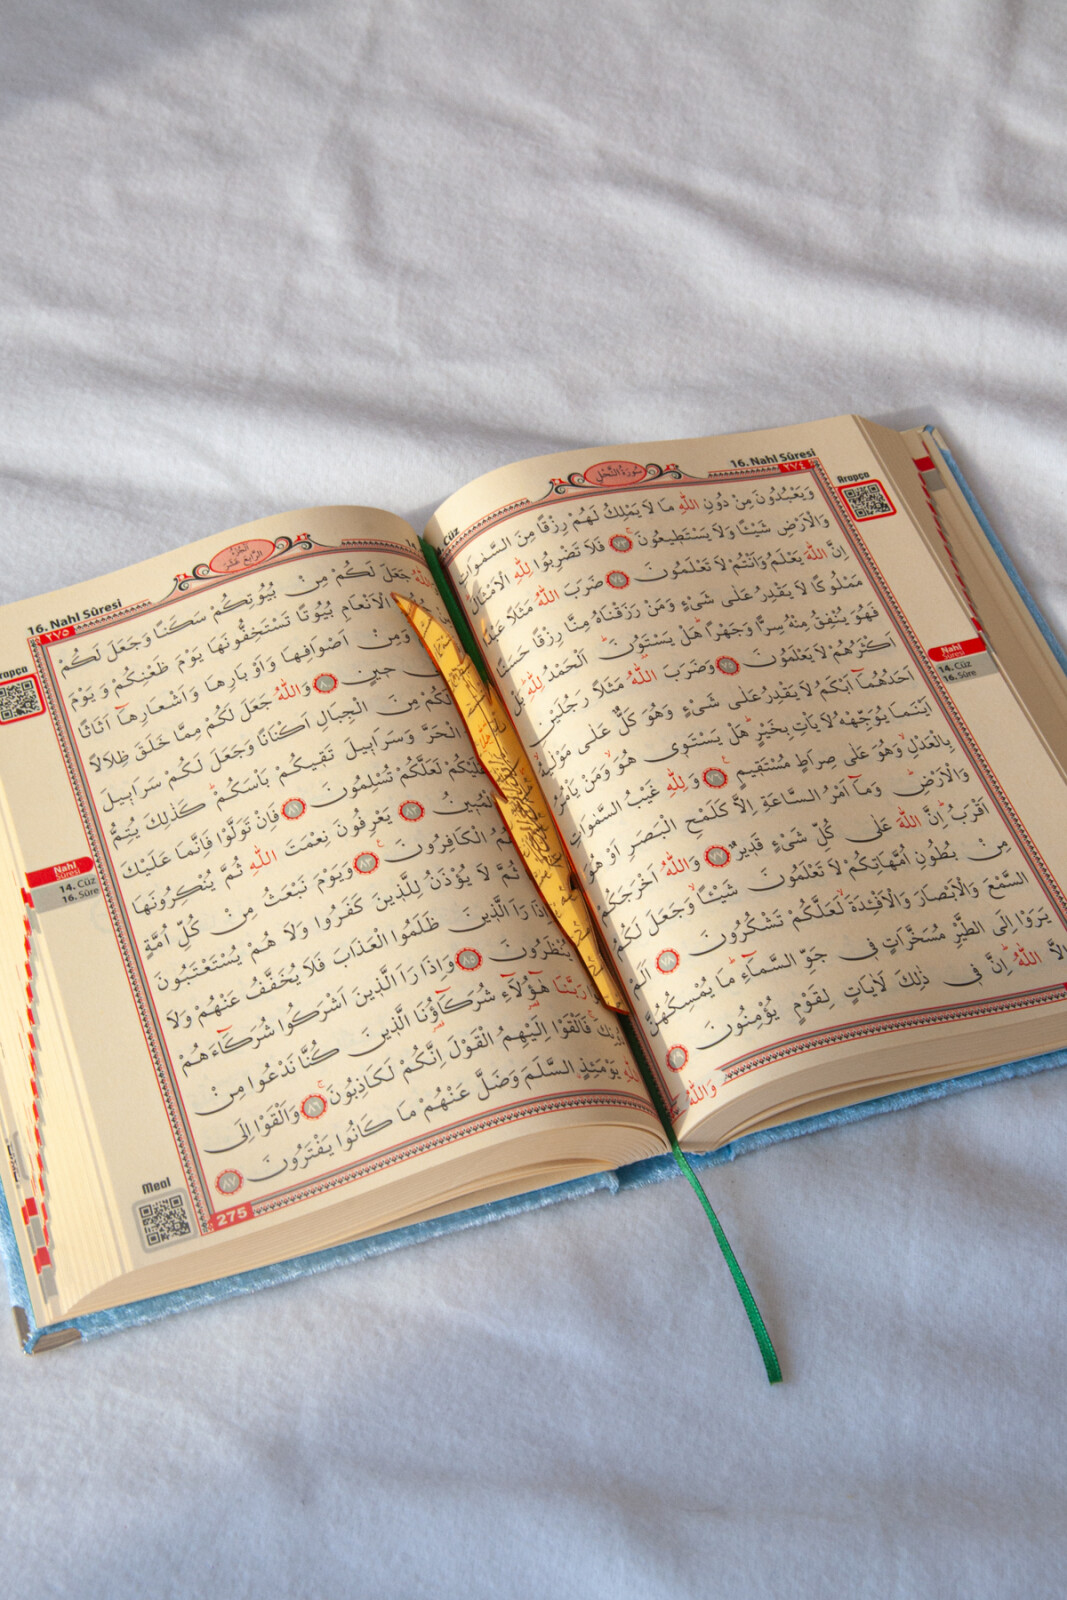 16. Nahl Sûresi
٢٧٤
سُورَةُ النَّحْلِ
Cüz
Arapça
وَيَعْبُدُونَ مِنْ دُونِ اللّٰهِ مَا لَا يَمْلِكُ لَهُمْ رِزْقًا مِنَ السَّمٰوَاتِ
وَالْاَرْضِ شَيْـًٔا وَلَا يَسْتَط۪يعُونَ ٧٣ فَلَا تَضْرِبُوا لِلّٰهِ الْاَمْثَالَ
اِنَّ اللّٰهَ يَعْلَمُ وَاَنْتُمْ لَا تَعْلَمُونَ ٧٤ ضَرَبَ اللّٰهُ مَثَلًا عَبْدًا
مَمْلُوكًا لَا يَقْدِرُ عَلٰى شَيْءٍ وَمَنْ رَزَقْنَاهُ مِنَّا رِزْقًا حَسَنًا
فَهُوَ يُنْفِقُ مِنْهُ سِرًّا وَجَهْرًا هَلْ يَسْتَوُنَ اَلْحَمْدُ لِلّٰهِ بَلْ
اَكْثَرُهُمْ لَا يَعْلَمُونَ ٧٥ وَضَرَبَ اللّٰهُ مَثَلًا رَجُلَيْنِ
اَحَدُهُمَٓا اَبْكَمُ لَا يَقْدِرُ عَلٰى شَيْءٍ وَهُوَ كَلٌّ عَلٰى مَوْلٰيهُ
اَيْنَمَا يُوَجِّهْهُ لَا يَأْتِ بِخَيْرٍ هَلْ يَسْتَو۪ي هُوَ وَمَنْ يَأْمُرُ
بِالْعَدْلِ وَهُوَ عَلٰى صِرَاطٍ مُسْتَق۪يمٍ ٧٦ وَلِلّٰهِ غَيْبُ السَّمٰوَاتِ
وَالْاَرْضِ وَمَٓا اَمْرُ السَّاعَةِ اِلَّا كَلَمْحِ الْبَصَرِ اَوْ هُوَ
اَقْرَبُ اِنَّ اللّٰهَ عَلٰى كُلِّ شَيْءٍ قَد۪يرٌ ٧٧ وَاللّٰهُ اَخْرَجَكُمْ
مِنْ بُطُونِ اُمَّهَاتِكُمْ لَا تَعْلَمُونَ شَيْـًٔا وَجَعَلَ لَكُمُ
السَّمْعَ وَالْاَبْصَارَ وَالْاَفْـِٔدَةَ لَعَلَّكُمْ تَشْكُرُونَ ٧٨ اَلَمْ
يَرَوْا اِلَى الطَّيْرِ مُسَخَّرَاتٍ ف۪ي جَوِّ السَّمَٓاءِ مَا يُمْسِكُهُنَّ
اِلَّا اللّٰهُ اِنَّ ف۪ي ذٰلِكَ لَاٰيَاتٍ لِقَوْمٍ يُؤْمِنُونَ ٧٩
وَاللّٰهُ
Nahl
Sûresi
14. Cüz
16. Sûre
16. Nahl Sûresi
٢٧٥
اَلْجُزْءُ
الرَّابِعَ عَشَرَ
وَاللّٰهُ جَعَلَ لَكُمْ مِنْ بُيُوتِكُمْ سَكَنًا وَجَعَلَ لَكُمْ
الْاَنْعَامِ بُيُوتًا تَسْتَخِفُّونَهَا يَوْمَ ظَعْنِكُمْ وَيَوْمَ
وَمِنْ اَصْوَافِهَا وَاَوْبَارِهَا وَاَشْعَارِهَٓا اَثَاثًا
ح۪ينٍ ٨٠ وَاللّٰهُ جَعَلَ لَكُمْ مِمَّا خَلَقَ ظِلَالًا
لَكُمْ مِنَ الْجِبَالِ اَكْنَانًا وَجَعَلَ لَكُمْ سَرَاب۪يلَ
الْحَرَّ وَسَرَاب۪يلَ تَق۪يكُمْ بَأْسَكُمْ كَذٰلِكَ يُتِمُّ
عَلَيْكُمْ لَعَلَّكُمْ تُسْلِمُونَ ٨١ فَاِنْ تَوَلَّوْا فَاِنَّمَا عَلَيْكَ
الْمُب۪ينُ ٨٢ يَعْرِفُونَ نِعْمَتَ اللّٰهِ ثُمَّ يُنْكِرُونَهَا
الْكَافِرُونَ ٨٣ وَيَوْمَ نَبْعَثُ مِنْ كُلِّ اُمَّةٍ
ثُمَّ لَا يُؤْذَنُ لِلَّذ۪ينَ كَفَرُوا وَلَا هُمْ يُسْتَعْتَبُونَ
وَاِذَا رَاَ الَّذ۪ينَ ظَلَمُوا الْعَذَابَ فَلَا يُخَفَّفُ عَنْهُمْ وَلَا
يُنْظَرُونَ ٨٥ وَاِذَا رَاَ الَّذ۪ينَ اَشْرَكُوا شُرَكَٓاءَهُمْ
رَبَّنَا هٰٓؤُ۬لَٓاءِ شُرَكَٓاؤُ۬نَا الَّذ۪ينَ كُنَّا نَدْعُوا مِنْ
دُونِكَ فَاَلْقَوْا اِلَيْهِمُ الْقَوْلَ اِنَّكُمْ لَكَاذِبُونَ ٨٦ وَاَلْقَوْا اِلَى
اللّٰهِ يَوْمَئِذٍ السَّلَمَ وَضَلَّ عَنْهُمْ مَا كَانُوا يَفْتَرُونَ ٨٧
Nahl
Sûresi
14. Cüz
16. Sûre
Meal
275